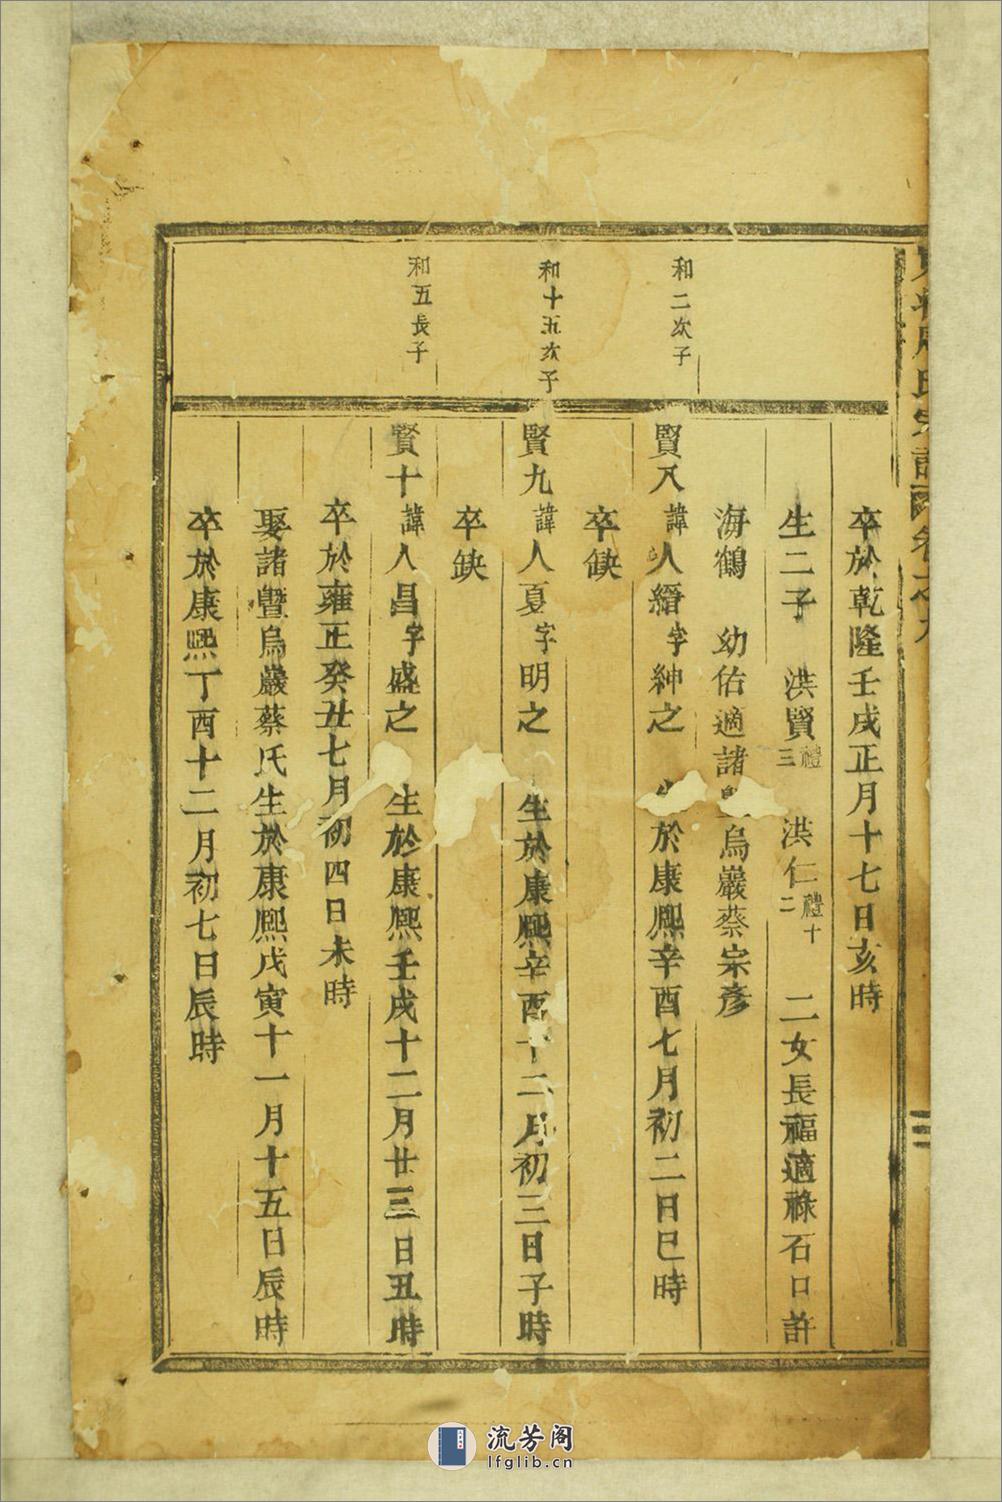 卒於乾隆壬戌正月十七日亥時
生二子 洪賢禮三 洪仁禮十二 二女長福適祿石口許
海鶴 幼佑適諸烏巖蔡宗彥
和二次子
賢八諱人縉字紳之 生於康熙辛酉七月初二日巳時
卒缺
和十五次子
賢九諱人夏字明之 生於康熙辛酉十二月初三日子時
卒缺
和五長子
賢十諱人昌字盛之 生於康熙壬戌十二月廿三日丑時
卒於雍正癸丑七月初四日未時
娶諸暨烏巖蔡氏生於康熙戊寅十一月十五日辰時
卒於康熙丁酉十二月初七日辰時
流芳阁
lfglib.cn